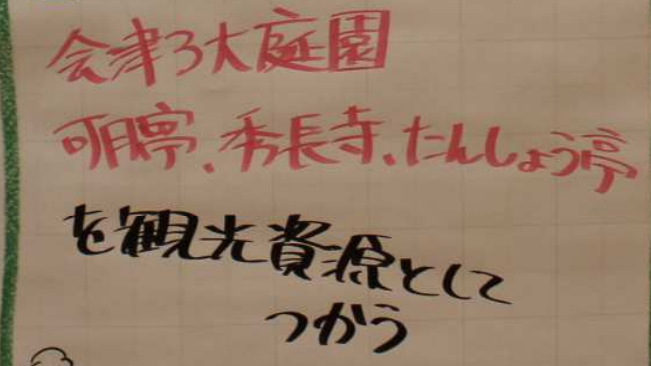 会津3大庭園
可月亭、秀長寺、たんしょう亭
を観光資源として
つかう